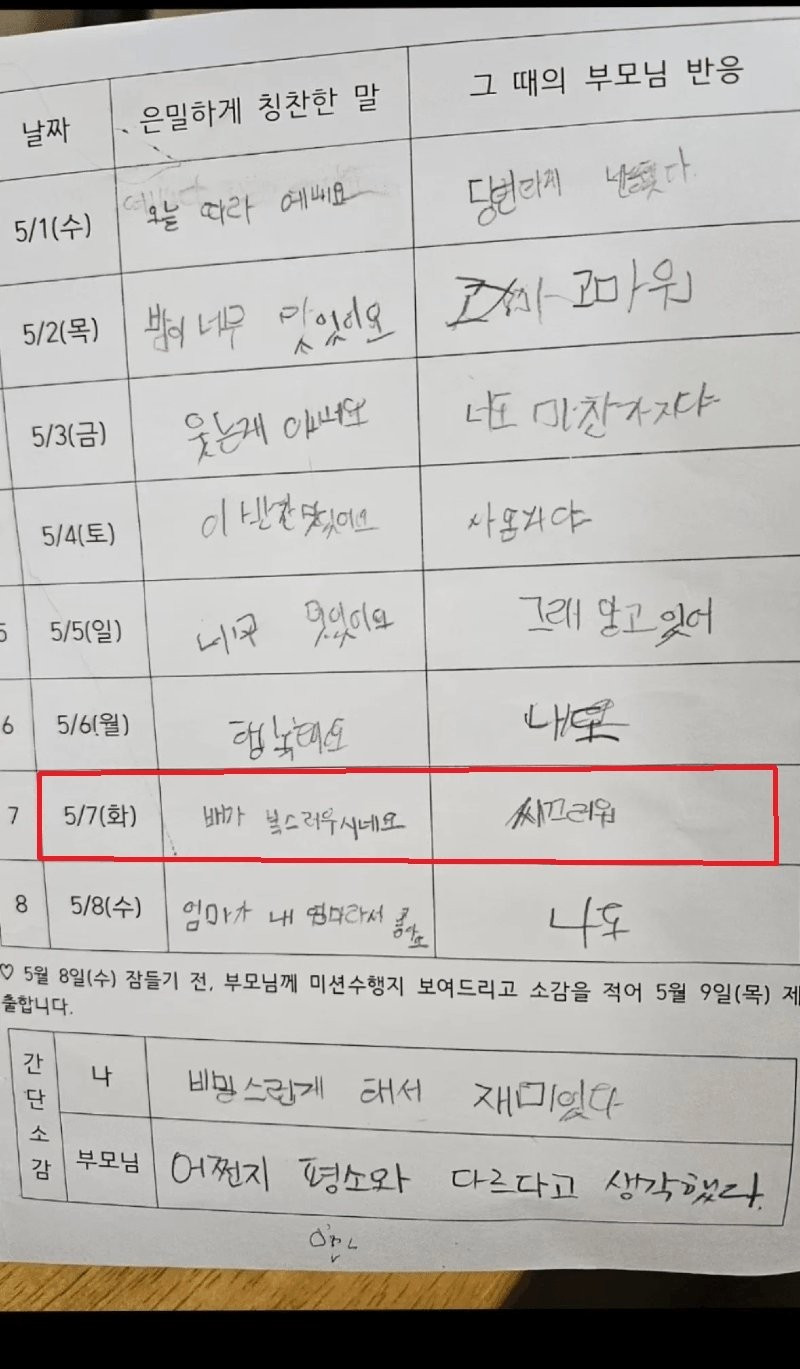 날짜 은밀하게 칭찬한 말 그 때의 부모님 반응
5/1(수) 오늘 따라 예뻐요
5/2(목) 밥이 너무 맛있어요 고마워
5/3(금) 웃는게 너도 마찬가지야
5/4(토) 이 반찬 맛있어요
5/5(일) 그래 알고 있어
6 5/6(월)
7 5/7(화) 배가 복스러우시네요 씨끄러워
8 5/8(수) 엄마가 내 엄마라서 좋아요 나도
♡ 5월 8일(수) 잠들기 전, 부모님께 미션수행지 보여드리고 소감을 적어 5월 9일(목) 제
출합니다.
간단소감
나 재미있다
부모님 어쩐지 평소와 다르다고 생각했다.